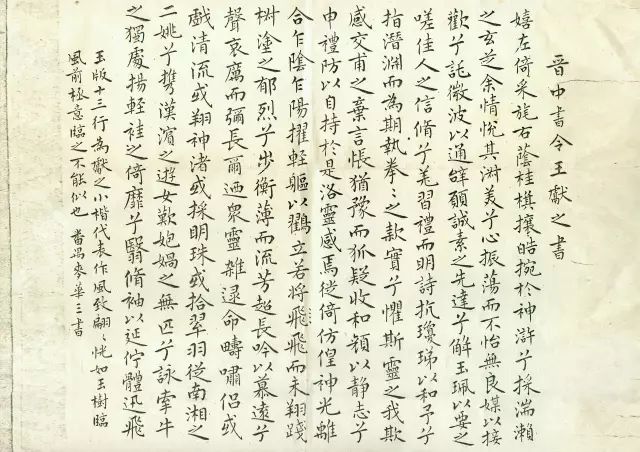 晉中書令王獻之書
嬉左倚采旄右蔭桂棋攘皓捥於神滸兮採湍瀨
之玄芝余情悅其淑美兮心振蕩而不怡無良媒以接
歡兮託微波以通辭願誠素之先達兮解玉珮以要之
嗟佳人之信脩兮羌習禮而明詩抗瓊珶以和予兮
指潛淵而為期執拳〻之款實兮懼斯靈之我欺
感交甫之棄言悵猶豫而狐疑收和顏以靜志兮
申禮防以自持於是洛靈感焉徙倚仿偟神光離
合乍陰乍陽擢輕軀以鶴立若將飛飛而未翔踐
椒塗之郁烈兮步衡薄而流芳超長吟以慕遠兮
聲哀厲而彌長爾迺衆靈雜遝命疇嘯侶或
戲清流或翔神渚或採明珠或拾翠羽從南湘之
二姚兮攜漢濱之遊女歎匏媧之無匹兮詠牽牛
之獨處揚輕袿之倚靡兮翳脩袖以延佇體迅飛
玉版十三行為獻之小楷代表作風致翩〻恍如玉樹臨
風前極意臨之不能似也 番禺麥華三書